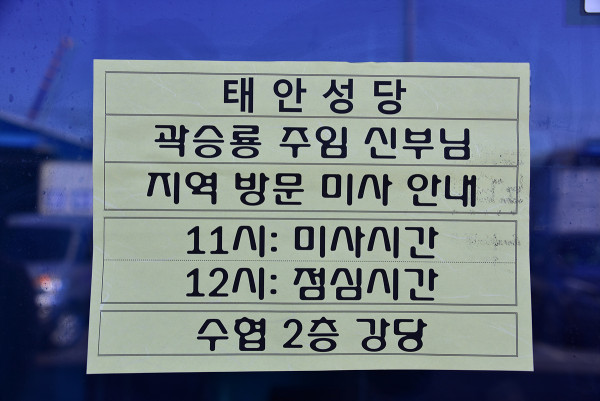 태안성당
곽승룡 주임 신부님
지역 방문 미사 안내
11시: 미사시간
12시: 점심시간
수협 2층 강당